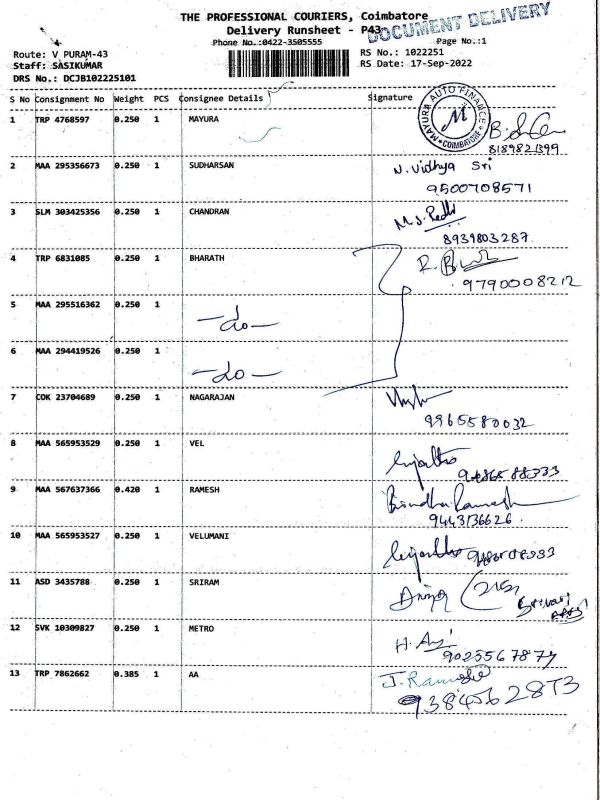 THE PROFESSIONAL COURIERS, Coimbatore
Delivery Runsheet - P43
DOCUMENT DELIVERY
Phone No.:0422-3505555 Page No.:1
Route: V PURAM-43 RS No.: 1022251
Staff: SASIKUMAR RS Date: 17-Sep-2022
DRS No.: DCJB102225101
S No Consignment No Weight PCS Consignee Details Signature
1 TRP 4768597 0.250 1 MAYURA
MAYURA AUTO FINANCE COIMBATORE M
8189821399
2 MAA 295356673 0.250 1 SUDHARSAN N. Vidhya Sri
9500708571
3 SLM 303425356 0.250 1 CHANDRAN
8939803287
4 TRP 6831085 0.250 1 BHARATH
9790008212
5 MAA 295516362 0.250 1
-do-
6 MAA 294419526 0.250 1
-do-
7 COK 23704689 0.250 1 NAGARAJAN
9965580032
8 MAA 565953529 0.250 1 VEL
9486588333
9 MAA 567637366 0.420 1 RAMESH
9443136626
10 MAA 565953527 0.250 1 VELUMANI
11 ASD 3435788 0.250 1 SRIRAM
12 SVK 10309827 0.250 1 METRO
9025567877
13 TRP 7862662 0.385 1 AA
9384562873